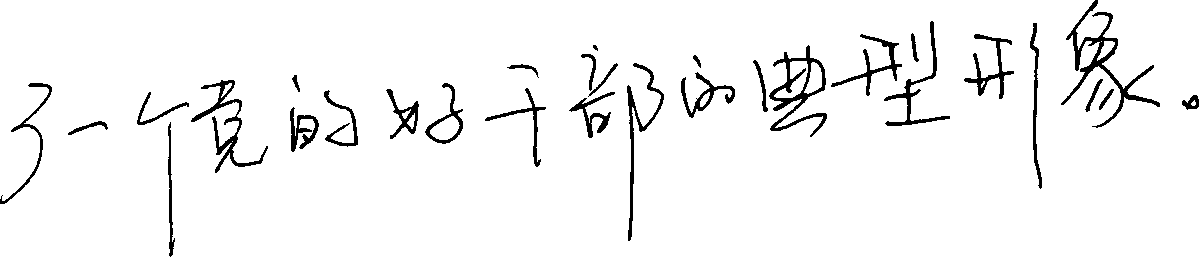 了一个党的好干部的典型形象。